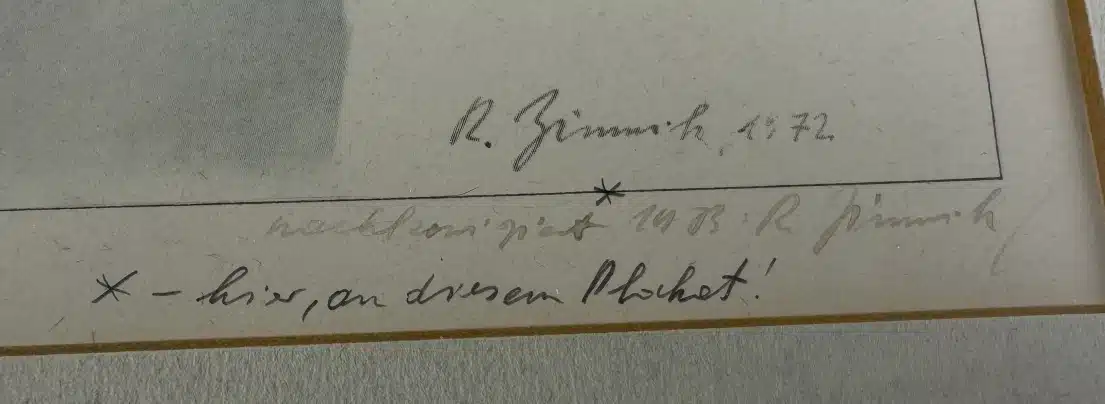 R. Zimnik, 1972
nachkorrigiert 1973: R Zimnik
* - hier, an diesem Plakat!